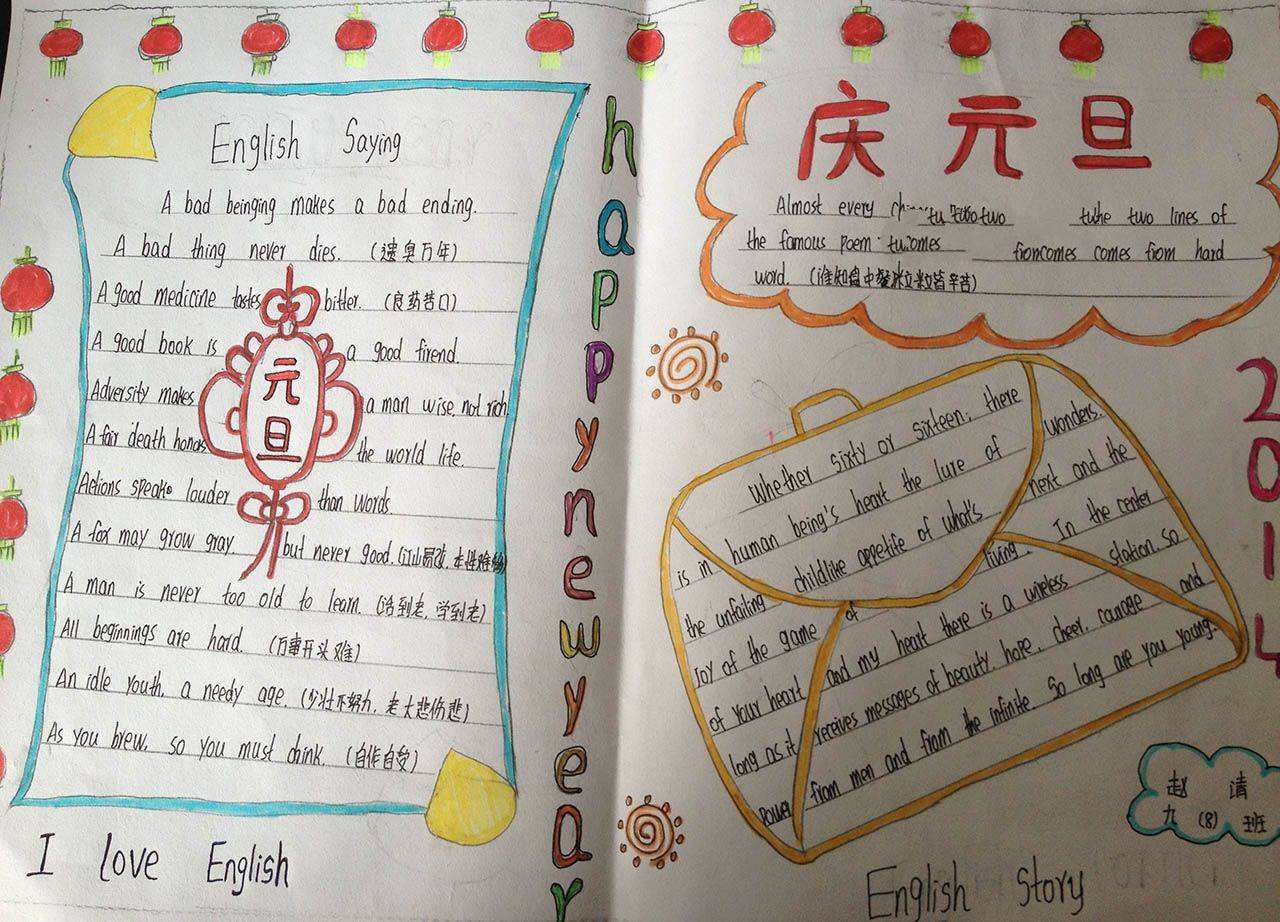 English Saying
A bad beinging makes a bad ending.
A bad thing never dies. (遗臭万年)
A good medicine tastes bitter. (良药苦口)
A good book is a good firend.
Adversity makes a man wise, not rich
A fair death honors the world life.
Actions speak louder than words
A fox may grow gray, but never good. (江山易改, 本性难移)
A man is never too old to learn. (活到老, 学到老)
All beginnings are hard. (万事开头难)
An idle youth, a needy age. (少壮不努力, 老大悲伤悲)
As you brew, so you must drink. (自作自受)
元旦
I love English
happy new year
庆元旦
Almost every two the two lines of
the famous poem: comes from hard
word. (谁知盘中餐 粒粒皆辛苦)
2014
Whether sixty or sixteen, there
is in human being's heart the lure of wonders.
the unfailing childlike appetite of what's next and the
joy of the game of living. In the center
of your heart and my heart there is a wireless station. so
long as it receives messages of beauty, hope, cheer, courage and
power from men and from the infinite. So long are you young.
赵清
九(8)班
English story